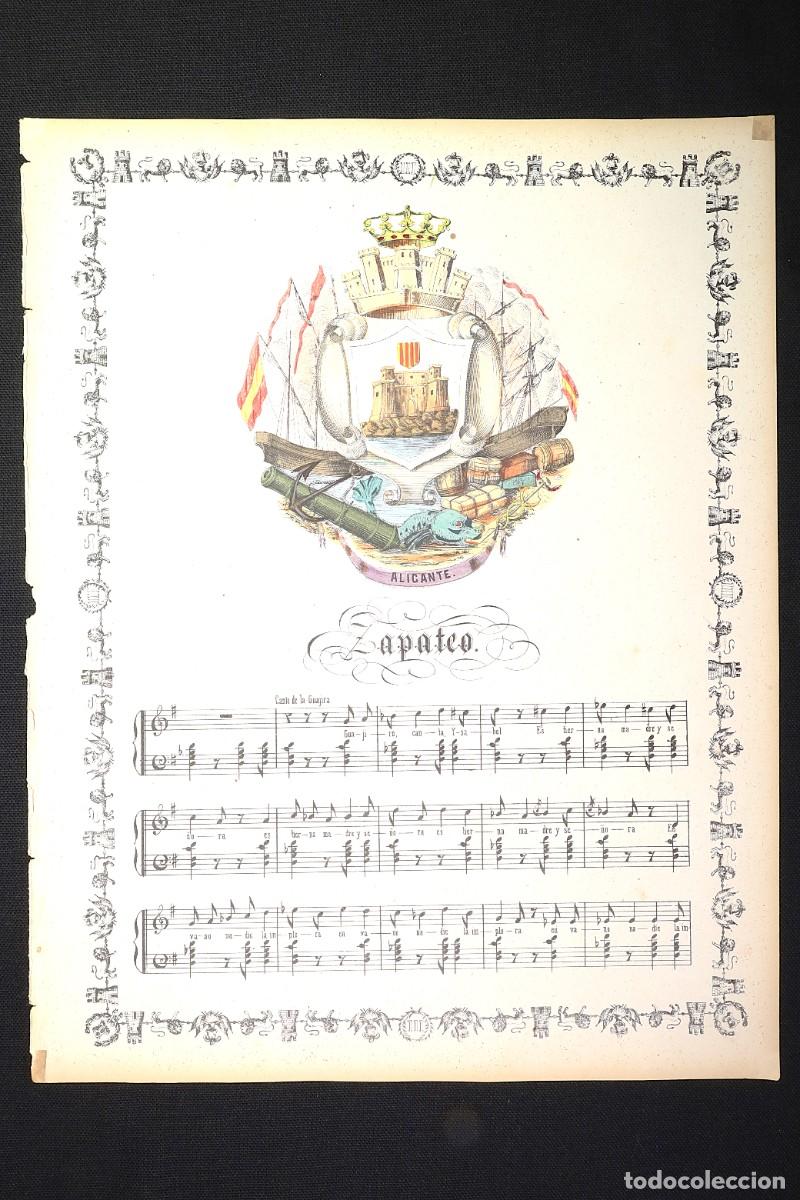 ALICANTE.
Zapateo.
Canto de la Guajira
Gua—ji—ro, can—la, Y—sa—bel Es her—na ma—dre y se
ño—ra es her—na ma—dre y se—ño—ra es her—na ma—dre y se—ño—ra En
va—no na—die la im—plo—ra en va—no na—die la im—plo—ra en va—no na—die la im
todocoleccion
todocoleccion.net